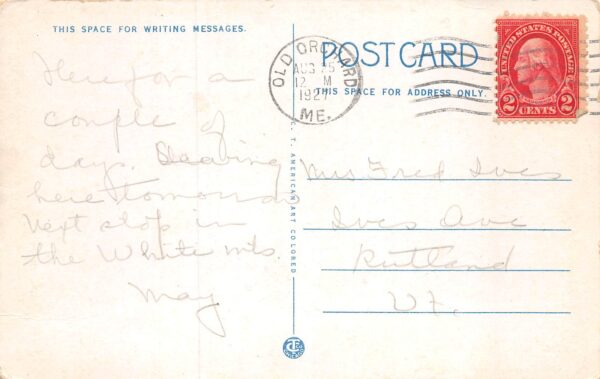 THIS SPACE FOR WRITING MESSAGES.
Here for a
couple of
days. Leaving
here tomorrow
Next stop in
the White mts.
May
C. T. AMERICAN ART COLORED
POST CARD
THIS SPACE FOR ADDRESS ONLY.
OLD ORCHARD
AUG 25
12 M
1927
ME.
UNITED STATES POSTAGE
2 CENTS 2
Mrs Fred Ives
Ives Ave
Rutland
Vt.